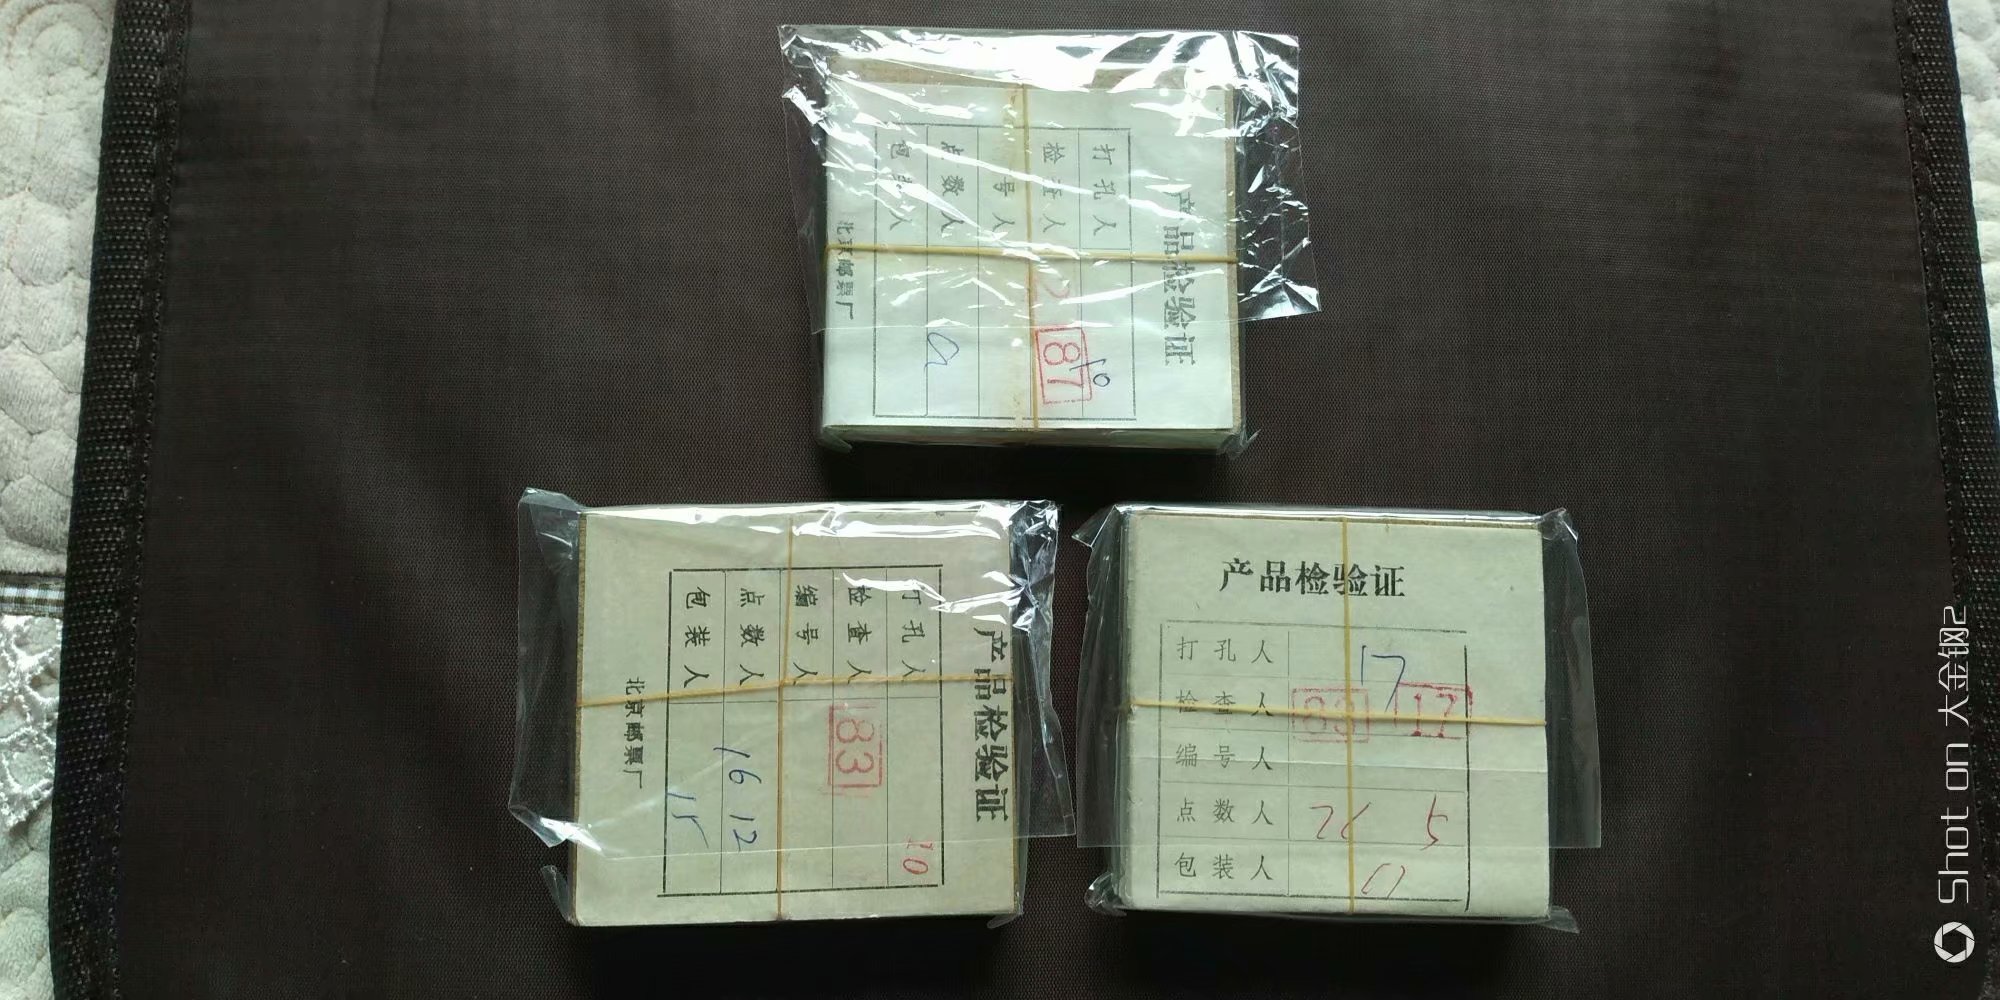 产品检验证
打孔人 10
检查人 87
号人
点数人
包装人
北京邮票厂
产品检验证
打孔人 10
检查人 83
编号人
点数人 16 12
包装人 15
北京邮票厂
产品检验证
打孔人 17
检查人 83 17
编号人
点数人 5
包装人
Shot on 大金钢2